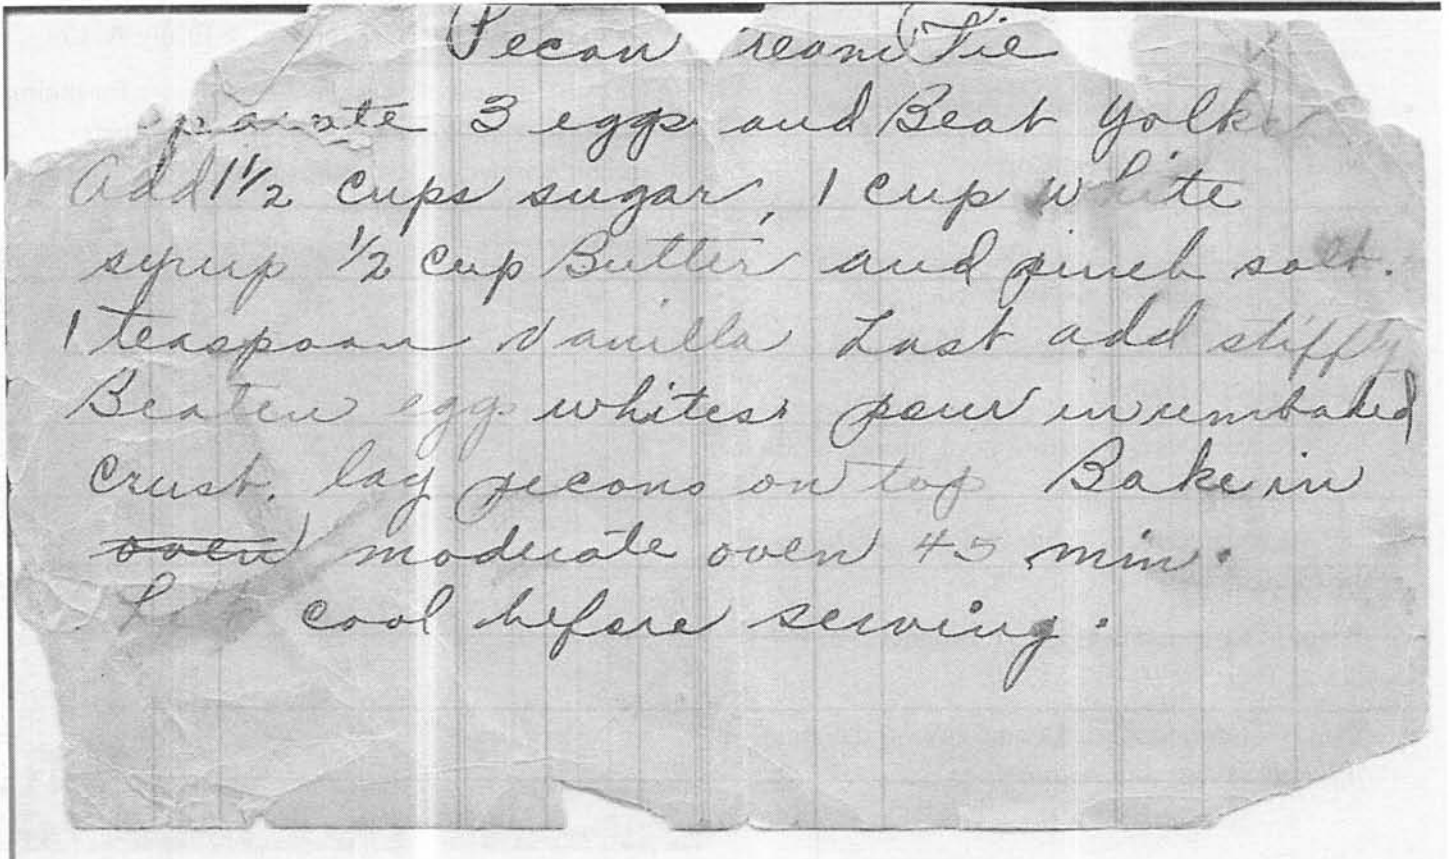 Pecan ream Pie
parate 3 eggs and Beat yolks
Add 1 1/2 cups sugar, 1 cup white
syrup 1/2 cup Butter and pinch salt.
1 teaspoon vanilla Last add stiffly
Beaten egg whites. pour in unbaked
crust. lay pecans on top Bake in
oven moderate oven 45 min.
Let cool before serving.